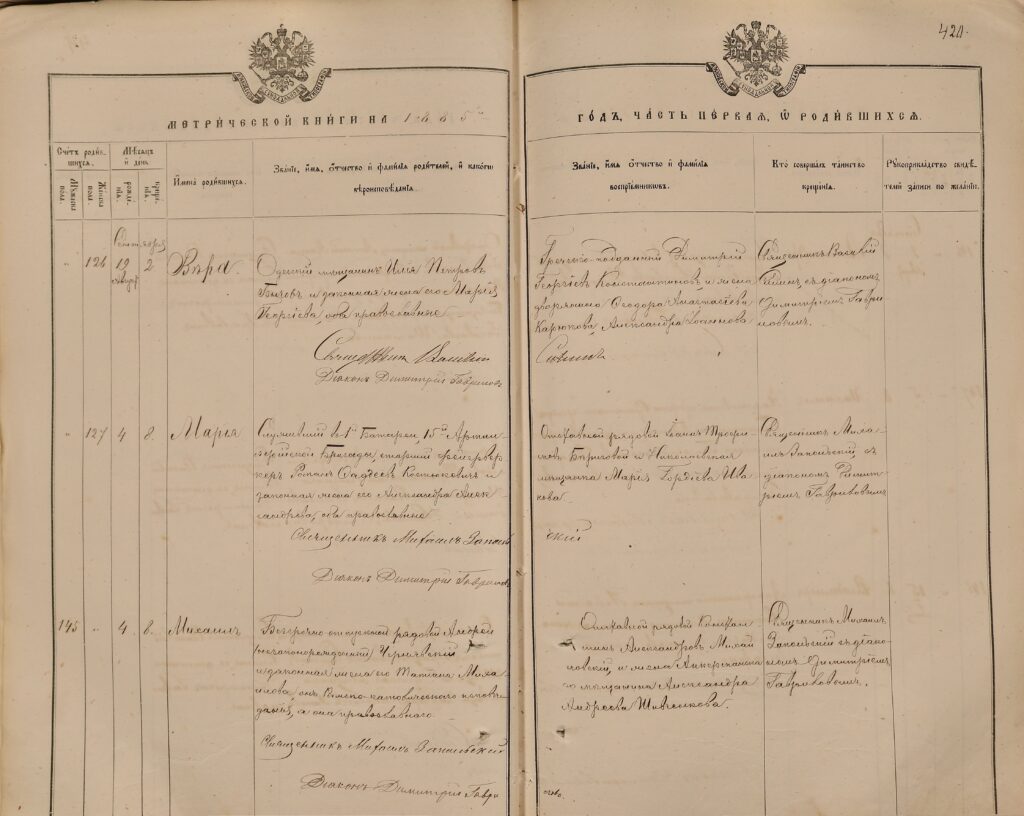 420.
МЕТРИЧЕСКОЙ КНИГИ НА 1885й
ГОДЪ, ЧАСТЬ ПЕРВАЯ, Ѡ РОДИВШИХСЯ.
Счетъ родив-
шихся.
Мѣсяцъ
и день.
Мужеска
пола.
Женска
пола.
рожде-
нія.
креще-
нія.
Имена родившихся.
Званіе, имя, отчество и фамилія родителей, и какого
вѣроисповѣданія.
Званіе, имя, отчество и фамилія
воспріемниковъ.
Кто совершалъ таинство
крещенія.
Рукоприкладство свидѣ-
телей записи по желанію.
Сентября
" 126 19 2 Вѣра.
Одесскій мѣщанинъ Илія Петровъ
Бычовъ и законная жена его Марія
Георгіева, оба православные
Священникъ Василій
Діаконъ Димитрій Гавриковъ
Греческо-подданный Димитрій
Георгіевъ Константиновъ и жена
дворянина Ѳеодора Анастасіева
Карюкова, Александра Іоаннова
Священникъ Василій
съ діакономъ
Димитріемъ Гаври
ковымъ.
" 127 4 8. Марія
Служившій въ 1й Батареи, 15й Артил-
лерійской Бригады, старшій фейервер-
керъ Романъ Фадѣевъ Костюкевичъ и
законная жена его Александра Алек-
сандрова, оба православные
Священникъ Михаилъ Запольскій
Діаконъ Димитрій Гавриковъ
Отставной рядовой Іоаннъ Трофи-
мовъ и Николаевская
мѣщанка Марія Гордѣева Ива
кова.
Священникъ Миха-
илъ Запольскій съ
діакономъ Димит-
ріемъ Гавриковымъ
145 " 4. 8. Михаилъ
Безсрочно отпускной рядовой Андрей
(незаконорожденный) Чернявскій
и законная жена его Татіана Миха-
илова, онъ Римско-католическаго исповѣ-
данія, а она православнаго
Священникъ Михаилъ Запольскій
Діаконъ Димитрій Гаври
ковъ.
Отставной рядовой Констан
тинъ Александровъ Михай
ловскій, и жена Аккерманска
го мѣщанина Александра
Андреева Шевченкова.
Священникъ Михаилъ
Запольскій съ діако-
номъ Димитріемъ
Гавриковымъ.